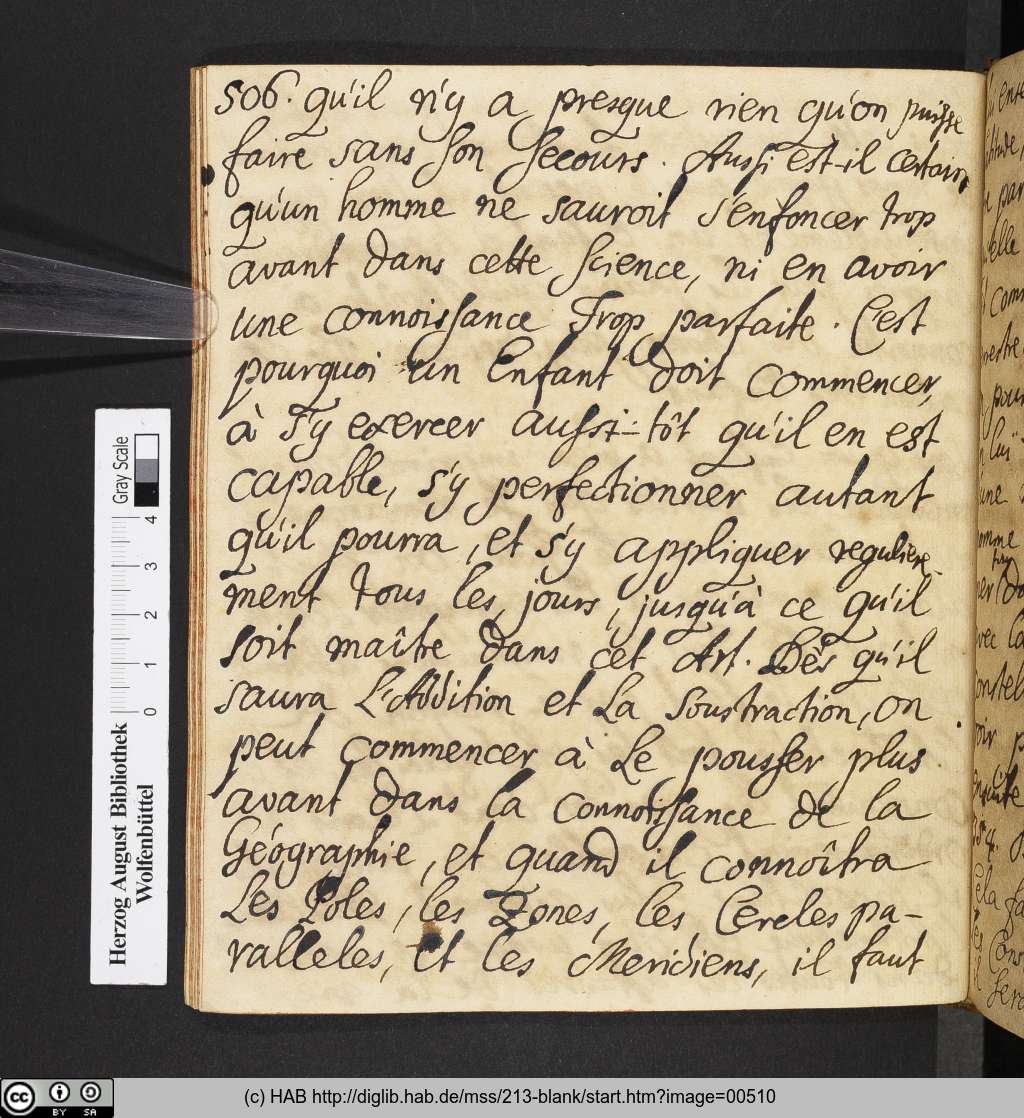 506. qu'il n'y a presque rien qu'on puisse
faire sans son secours. Aussi est-il certain
qu'un homme ne sauroit s'enfoncer trop
avant dans cette science, ni en avoir
une connoissance Trop parfaite. C'est
pourquoi un Enfant doit commencer,
à s'y exercer aussi-tôt qu'il en est
capable, s'y perfectionner autant
qu'il pourra, et s'y appliquer reguliere-
ment tous les jours, jusqu'à ce qu'il
soit maître dans cet Art. Dès qu'il
saura L'Addition et La Soustraction, on
peut commencer à Le pousser plus
avant dans la connoissance de la
Géographie, et quand il connoîtra
Les Poles, les Zones, les Cercles pa-
ralleles, Et les Meridiens, il faut
Gray Scale
0 1 2 3 4
Herzog August Bibliothek
Wolfenbüttel
cc BY SA
(c) HAB http://diglib.hab.de/mss/213-blank/start.htm?image=00510